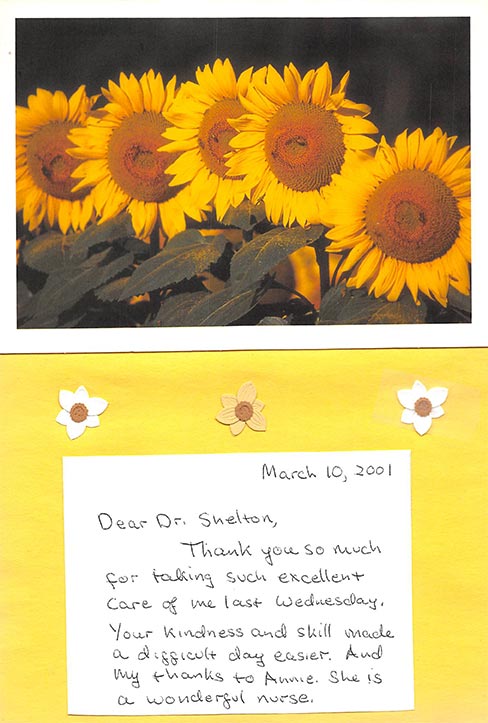 March 10, 2001
Dear Dr. Shelton,
Thank you so much
for taking such excellent
care of me last Wednesday.
Your kindness and skill made
a difficult day easier. And
my thanks to Annie. She is
a wonderful nurse.